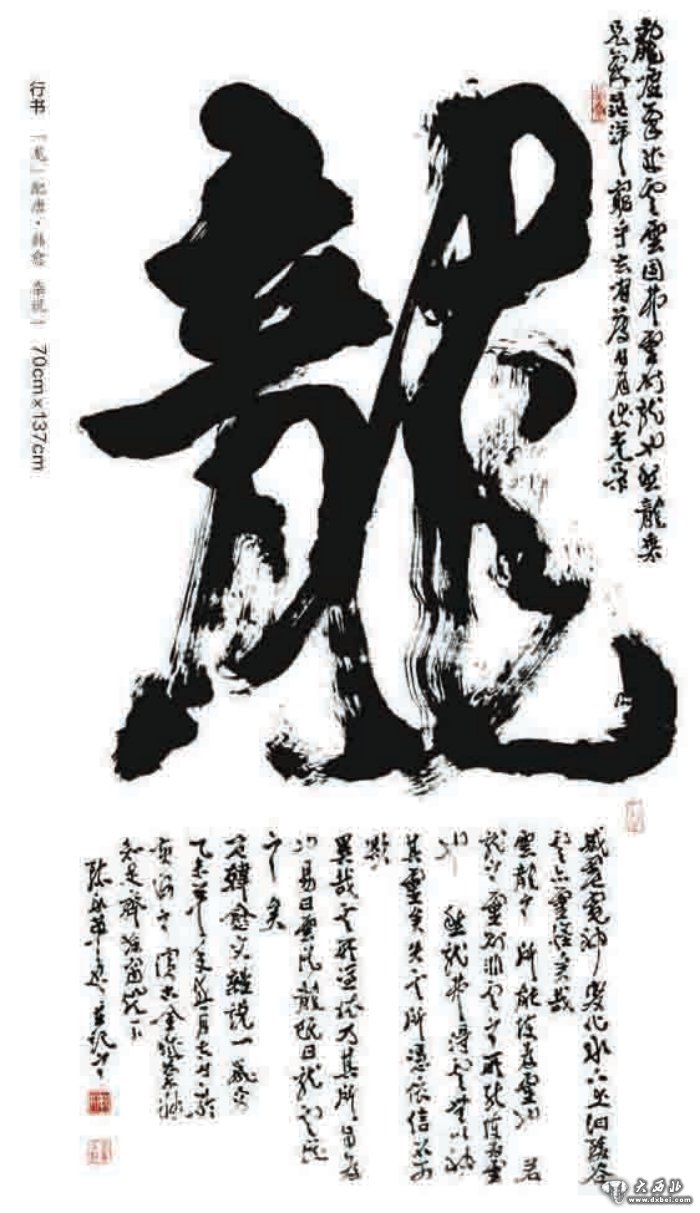 龍嘘氣成雲雲固弗靈於龍也然龍乘
是氣茫洋窮乎玄間薄日月伏光景
龍
感震電神變化水下土汩陵谷
雲亦靈怪矣哉
雲龍之所能使為靈也若
龍之靈則非雲之所能使為靈
也然龍弗得雲無以神
其靈矣失其所憑依信不可
歟
異哉其所憑依乃其所自為
也易曰雲從龍既曰龍雲從
之矣
韓愈文雜說一
乙未年
行书 「龙」配唐·韩愈 杂说一 70cm×137cm
大西北
www.dxbei.com